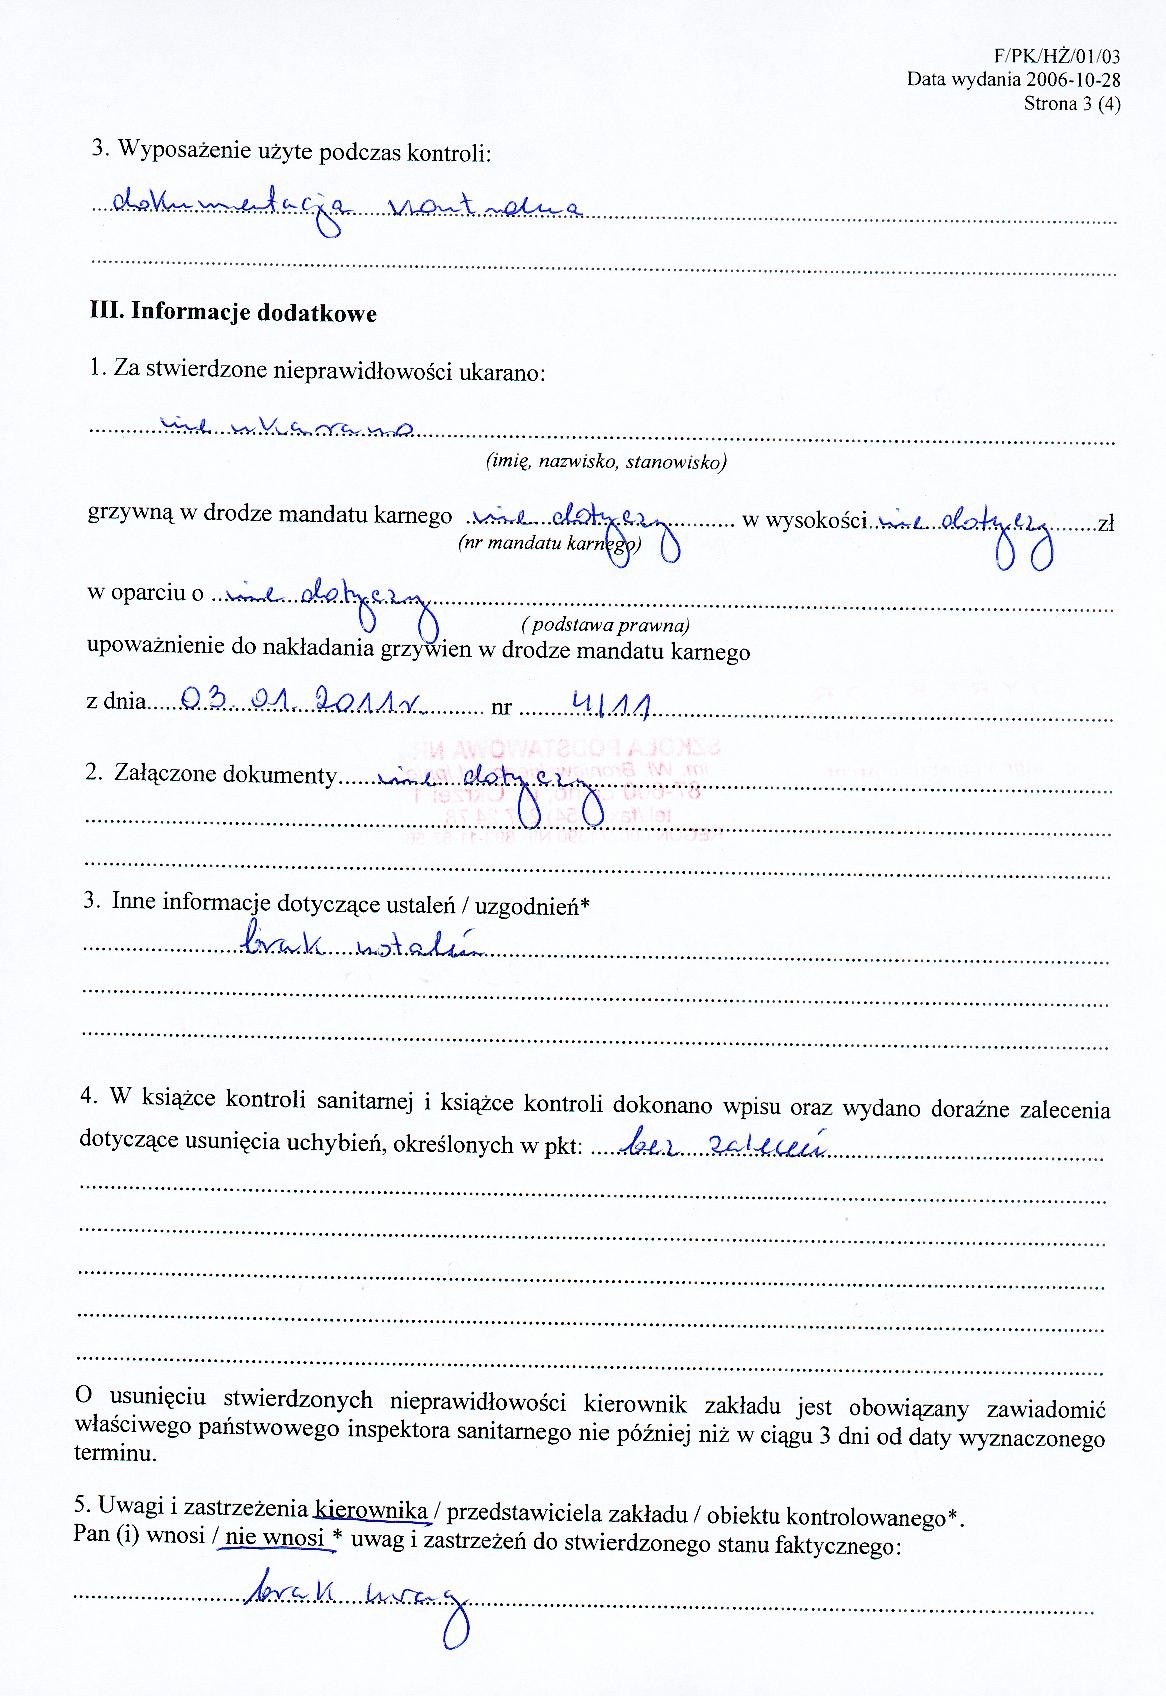 F/PK/HŻ/01/03
Data wydania 2006-10-28
Strona 3 (4)
3. Wyposażenie użyte podczas kontroli:
dokumentacja kontrolna
III. Informacje dodatkowe
1. Za stwierdzone nieprawidłowości ukarano:
nie ukarano
(imię, nazwisko, stanowisko)
grzywną w drodze mandatu karnego nie dotyczy w wysokości nie dotyczy zł
(nr mandatu karnego)
w oparciu o nie dotyczy
(podstawa prawna)
upoważnienie do nakładania grzywien w drodze mandatu karnego
z dnia 03.01.2011r. nr 4/11
SZKOŁA PODSTAWOWA NR
2. Załączone dokumenty nie dotyczy
3. Inne informacje dotyczące ustaleń / uzgodnień*
brak ustaleń
4. W książce kontroli sanitarnej i książce kontroli dokonano wpisu oraz wydano doraźne zalecenia
dotyczące usunięcia uchybień, określonych w pkt: bez zaleceń
O usunięciu stwierdzonych nieprawidłowości kierownik zakładu jest obowiązany zawiadomić
właściwego państwowego inspektora sanitarnego nie później niż w ciągu 3 dni od daty wyznaczonego
terminu.
5. Uwagi i zastrzeżenia kierownika / przedstawiciela zakładu / obiektu kontrolowanego*.
Pan (i) wnosi / nie wnosi * uwag i zastrzeżeń do stwierdzonego stanu faktycznego:
brak uwag